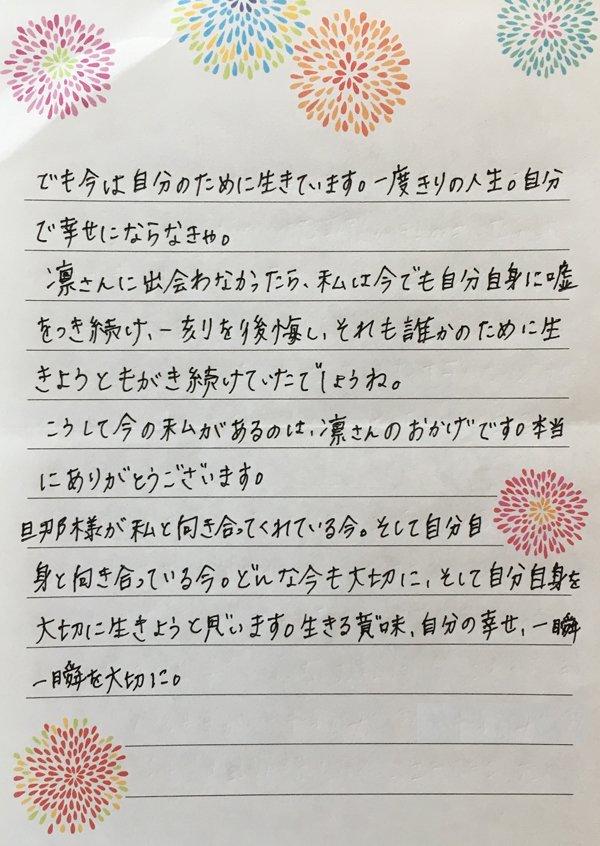 でも今は自分のために生きています。一度きりの人生。自分
で幸せにならなきゃ。
凛さんに出会わなかったら、私は今でも自分自身に嘘
をつき続け、一刻りを後悔し、それも誰かのために生
きようともがき続けていたでしょうね。
こうして今の私があるのは、凛さんのおかげです。本当
にありがとうございます。
旦那様が私と向き合ってくれている今。そして自分自
身と向き合っている今。どんな今も大切に、そして自分自身を
大切に生きようと思います。生きる意味、自分の幸せ、一瞬
一瞬を大切に。